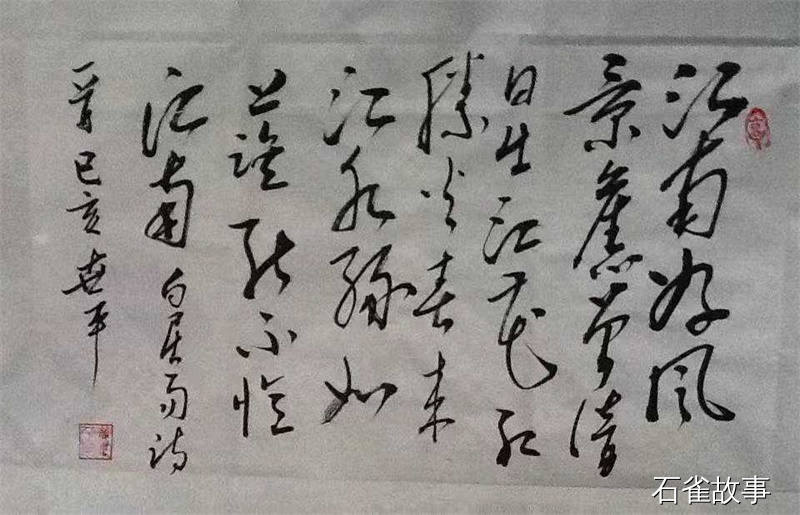 江南好风
景舊曾谙
日出江花红
勝火春来
江水绿如
蓝能不忆
江南 白居易诗
一首 己亥 平
石雀故事